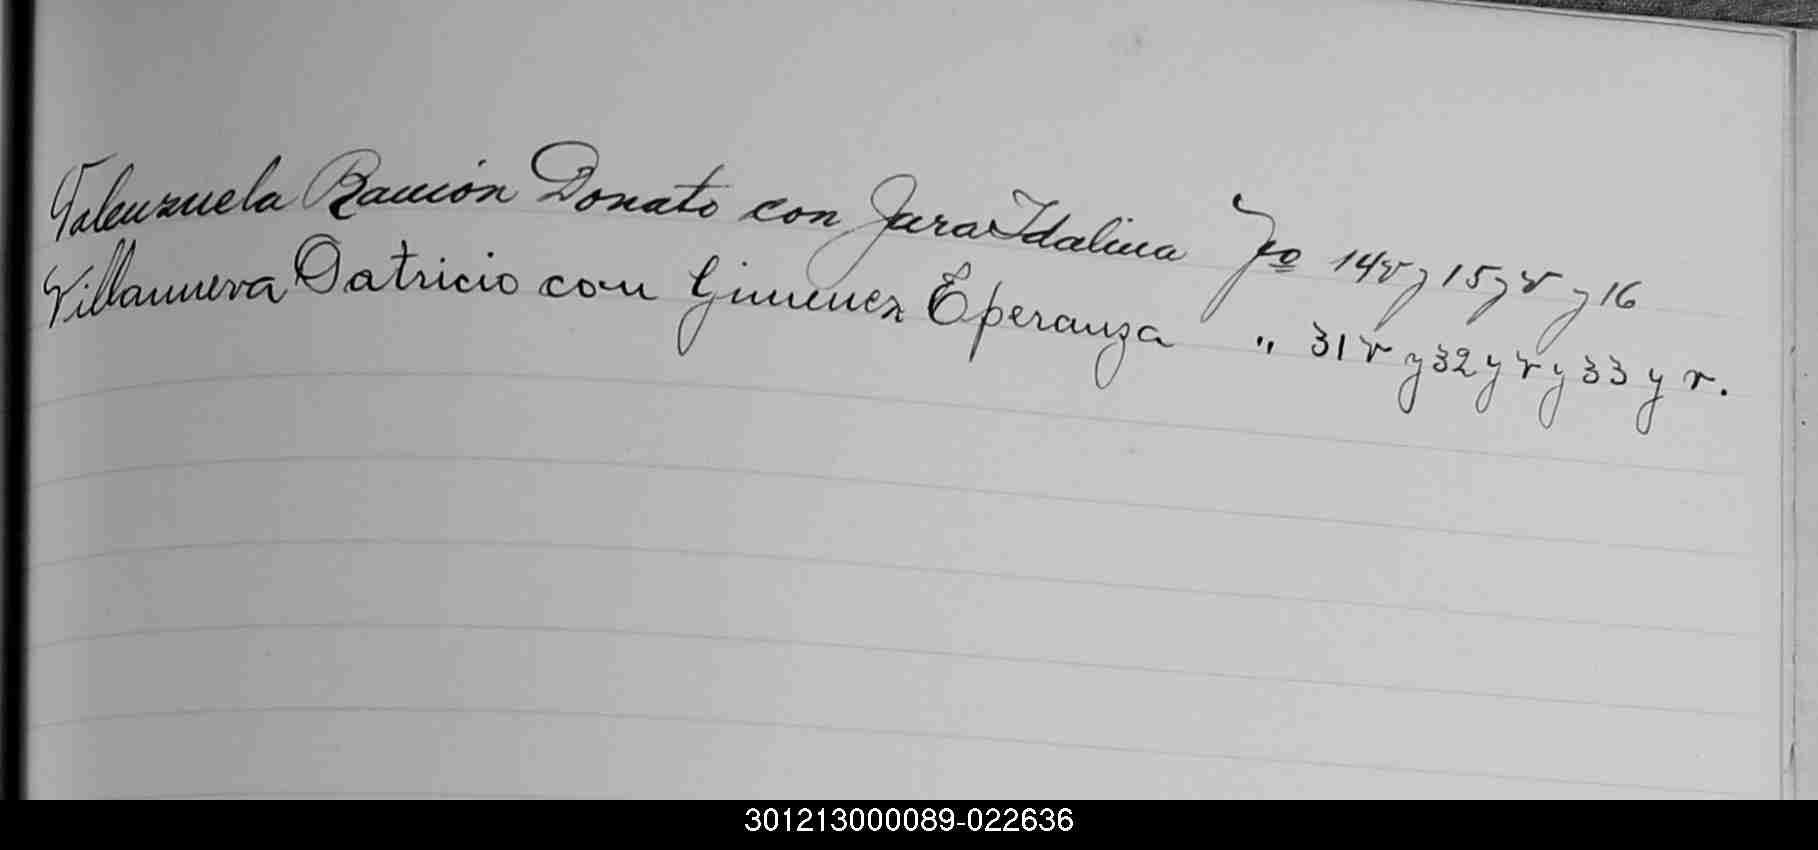 Valenzuela Ramón Donato con Jara Idalina Fo 14v y 15 y v y 16
Villanueva Patricio con Gimenez Eperanza " 31 v y 32 y v y 33 y v.
301213000089-022636